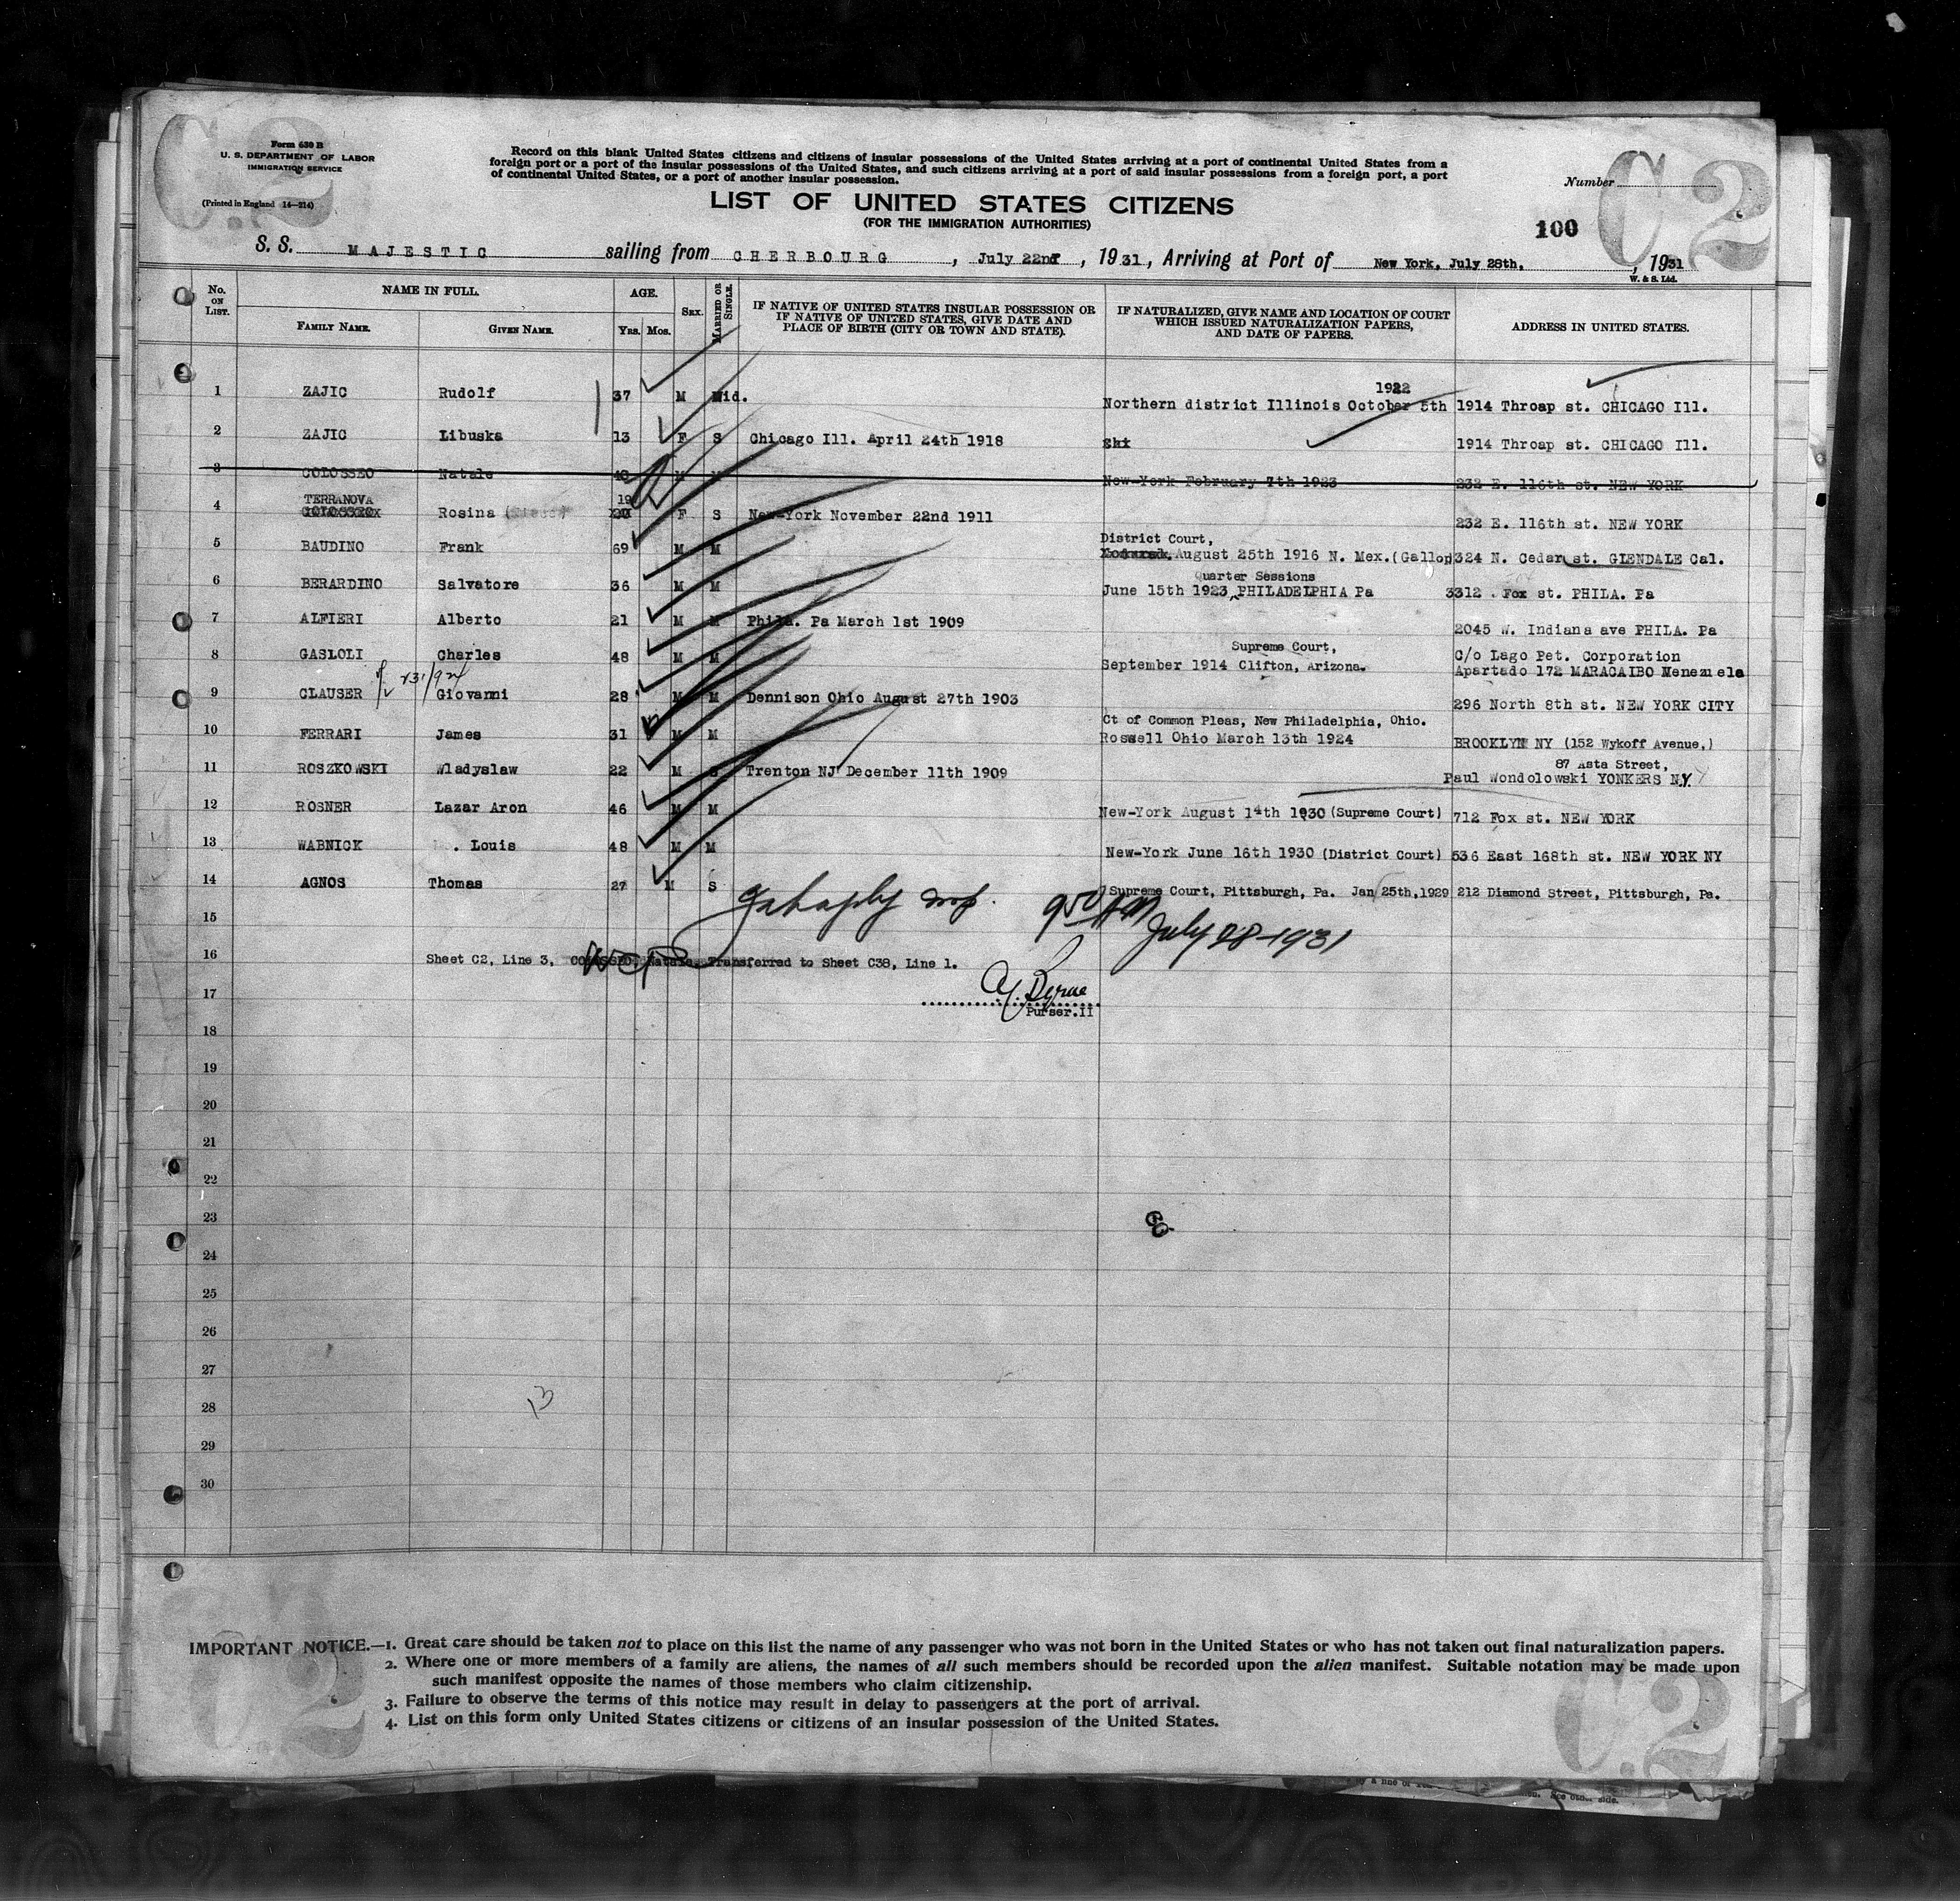 C.2
Form 630 B
U. S. DEPARTMENT OF LABOR
IMMIGRATION SERVICE
(Printed in England 14—214)
Record on this blank United States citizens and citizens of insular possessions of the United States arriving at a port of continental United States from a
foreign port or a port of the insular possessions of the United States, and such citizens arriving at a port of said insular possessions from a foreign port, a port
of continental United States, or a port of another insular possession.
LIST OF UNITED STATES CITIZENS
(FOR THE IMMIGRATION AUTHORITIES)
Number
C 2
100
S. S. MAJESTIC sailing from CHERBOURG, July 22nd, 1931, Arriving at Port of New York, July 28th, 1931
W. & S. Ltd.
No. ON LIST. NAME IN FULL. AGE. SEX. MARRIED OR SINGLE. IF NATIVE OF UNITED STATES INSULAR POSSESSION OR IF NATIVE OF UNITED STATES, GIVE DATE AND PLACE OF BIRTH (CITY OR TOWN AND STATE). IF NATURALIZED, GIVE NAME AND LOCATION OF COURT WHICH ISSUED NATURALIZATION PAPERS, AND DATE OF PAPERS. ADDRESS IN UNITED STATES.
FAMILY NAME. GIVEN NAME. YRS. MOS.
1922
1 ZAJIC Rudolf 37 M Wid. Northern district Illinois October 5th 1914 Throap st. CHICAGO Ill.
2 ZAJIC Libuska 13 F S Chicago Ill. April 24th 1918 1914 Throap st. CHICAGO Ill.
3 COLOSSEO Natale M New-York February 7th 1923 232 E. 116th st. NEW YORK
TERRANOVA 19
4 COLOSSEO Rosina F S New-York November 22nd 1911 232 E. 116th st. NEW YORK
District Court,
5 BAUDINO Frank 69 M M August 25th 1916 N. Mex.(Gallop 324 N. Cedar st. GLENDALE Cal.
Quarter Sessions
6 BERARDINO Salvatore 36 M M June 15th 1923 PHILADELPHIA Pa 3312 Fox st. PHILA. Pa
7 ALFIERI Alberto 21 M M Phila. Pa March 1st 1909 2045 W. Indiana ave PHILA. Pa
Supreme Court, C/o Lago Pet. Corporation
8 GASLOLI Charles 48 M M September 1914 Clifton, Arizona. Apartado 172 MARACAIBO Menezuela
9 CLAUSER Giovanni 28 M M Dennison Ohio August 27th 1903 296 North 8th st. NEW YORK CITY
Ct of Common Pleas, New Philadelphia, Ohio.
10 FERRARI James 31 M M Roswell Ohio March 13th 1924 BROOKLYN NY (152 Wykoff Avenue,)
87 Asta Street,
11 ROSZKOWSKI Wladyslaw 22 M S Trenton NJ December 11th 1909 Paul Wondolowski YONKERS N.Y.
12 ROSNER Lazar Aron 46 M M New-York August 14th 1930 (Supreme Court) 712 Fox st. NEW YORK
13 WABNICK . Louis 48 M M New-York June 16th 1930 (District Court) 536 East 168th st. NEW YORK NY
14 AGNOS Thomas 27 M S Supreme Court, Pittsburgh, Pa. Jan 25th, 1929 212 Diamond Street, Pittsburgh, Pa.
15 insp. 9 50 AM July 28-1931
16 Sheet C2, Line 3, COLOSSEO, Natale. Transferred to Sheet C38, Line 1.
17 Byrne
Purser.II
18
19
20
21
22
23
24
25
26
27
28
13
29
30
IMPORTANT NOTICE.—1. Great care should be taken not to place on this list the name of any passenger who was not born in the United States or who has not taken out final naturalization papers.
2. Where one or more members of a family are aliens, the names of all such members should be recorded upon the alien manifest. Suitable notation may be made upon
such manifest opposite the names of those members who claim citizenship.
3. Failure to observe the terms of this notice may result in delay to passengers at the port of arrival.
4. List on this form only United States citizens or citizens of an insular possession of the United States.
C.2
C.2